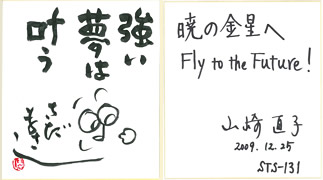 強い
夢は
叶う
ちば
てつや
暁の金星へ
Fly to the Future!
山崎 直子
2009.12.25
STS-131